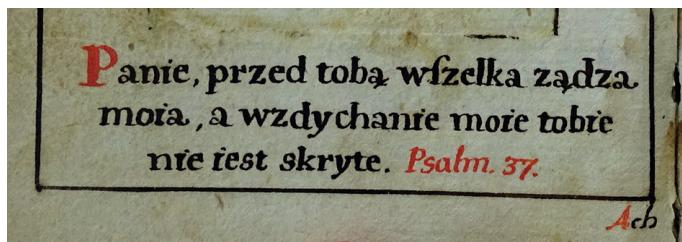 Panie, przed tobą wſzelka ządza
moia, a wzdychanie moie tobie
nie iest skryte. Psalm. 37.
Ach